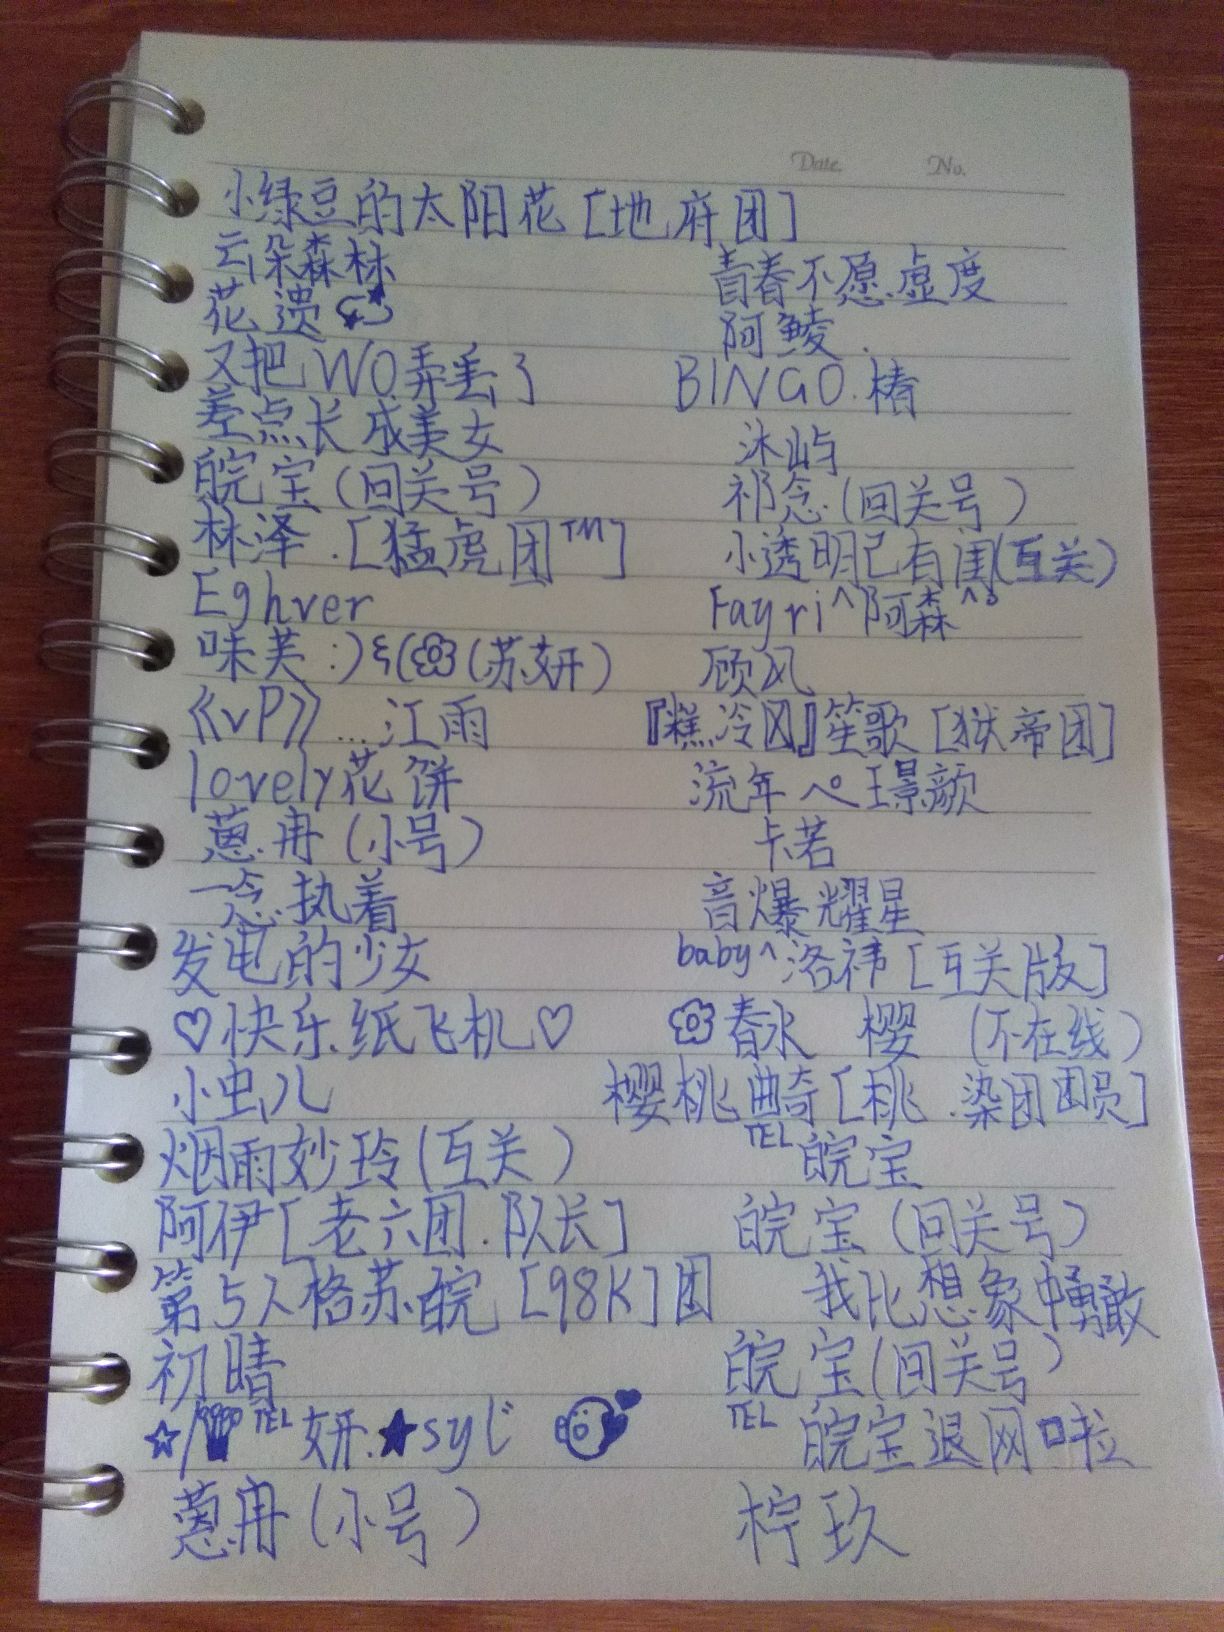 Date. No.
小绿豆的太阳花[地府团]
云朵森林 青春不愿.虚度
花.遗 阿鲮.
又把WO弄丢了 BINGO.椿
差点长成美女 沐屿
皖宝(回关号) 祁念.(回关号)
林泽.[猛虎团™] 小透明已有闺(互关)
Eghver Fayri^阿森^
味芙:)(苏妍) 顾风
《vP》...江雨 『糕冷风』笙歌[狱帝团]
lovely花饼 流年ペ璟颜
蒽.冉(小号) 卡若
一念.执着 音爆耀星
发电的少女 baby^洛祎[互关版]
♡快乐纸飞机♡ 春水 樱 (不在线)
小虫儿 樱桃曲奇[桃.染团团员]
烟雨妙玲(互关) TEL皖宝
阿伊[老六团.队长] 皖宝(回关号)
第5人格苏皖[98K]团 我比想象中勇敢
初晴 皖宝(回关号)
☆TEL妍.★syじ TEL皖宝退网啦
蒽冉(小号) 柠玖